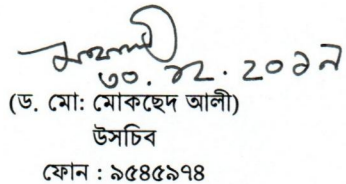 ৩০.১২.২০১৯
(ড. মো: মোকছেদ আলী)
উসচিব
ফোন : ৯৫৪৫৯৭৪